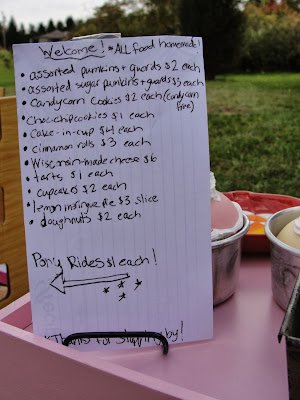 Welcome! *ALL food homemade!
• assorted pumkins + guords $2 each
• assorted sugar pumkins + guords $3 each
• Candycorn Cookies $2 each (candycorn free)
• choc-chip cookies $1 each
• cake-in-cup $4 each
• cinnamon rolls $3 each
• Wisconsin-made cheese $6
• tarts $1 each
• cupcakes $2 each
• lemon miringue pie $3 slice
• doughnuts $2 each
Pony Rides $1 each!
*Thanks for stopping by!